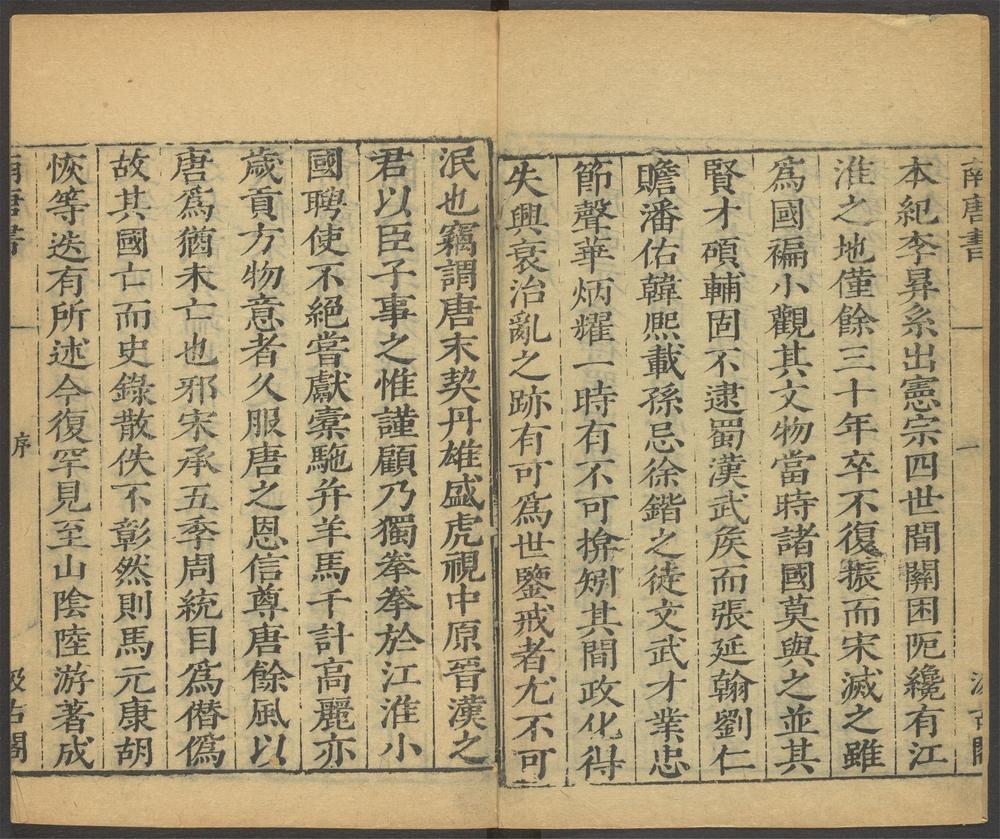 南唐書
一
一
汲古閣
本紀李昪系出憲宗四世間關困阨纔有江
淮之地僅餘三十年卒不復振而宋滅之雖
爲國褊小觀其文物當時諸國莫與之並其
賢才碩輔固不逮蜀漢武矦而張延翰劉仁
贍潘佑韓熙載孫忌徐鍇之徒文武才業忠
節聲華炳耀一時有不可揜矧其間政化得
失興衰治亂之跡有可爲世鑒戒者尤不可
泯也竊謂唐末契丹雄盛虎視中原晉漢之
君以臣子事之惟謹顧乃獨拳拳於江淮小
國聘使不絕嘗獻橐駞并羊馬千計高麗亦
歲貢方物意者久服唐之恩信尊唐餘風以
唐爲猶未亡也邪宋承五季周統目爲僭僞
故其國亡而史錄散佚不彰然則馬元康胡
恢等迭有所述今復罕見至山陰陸游著成
南唐書
序
汲古閣